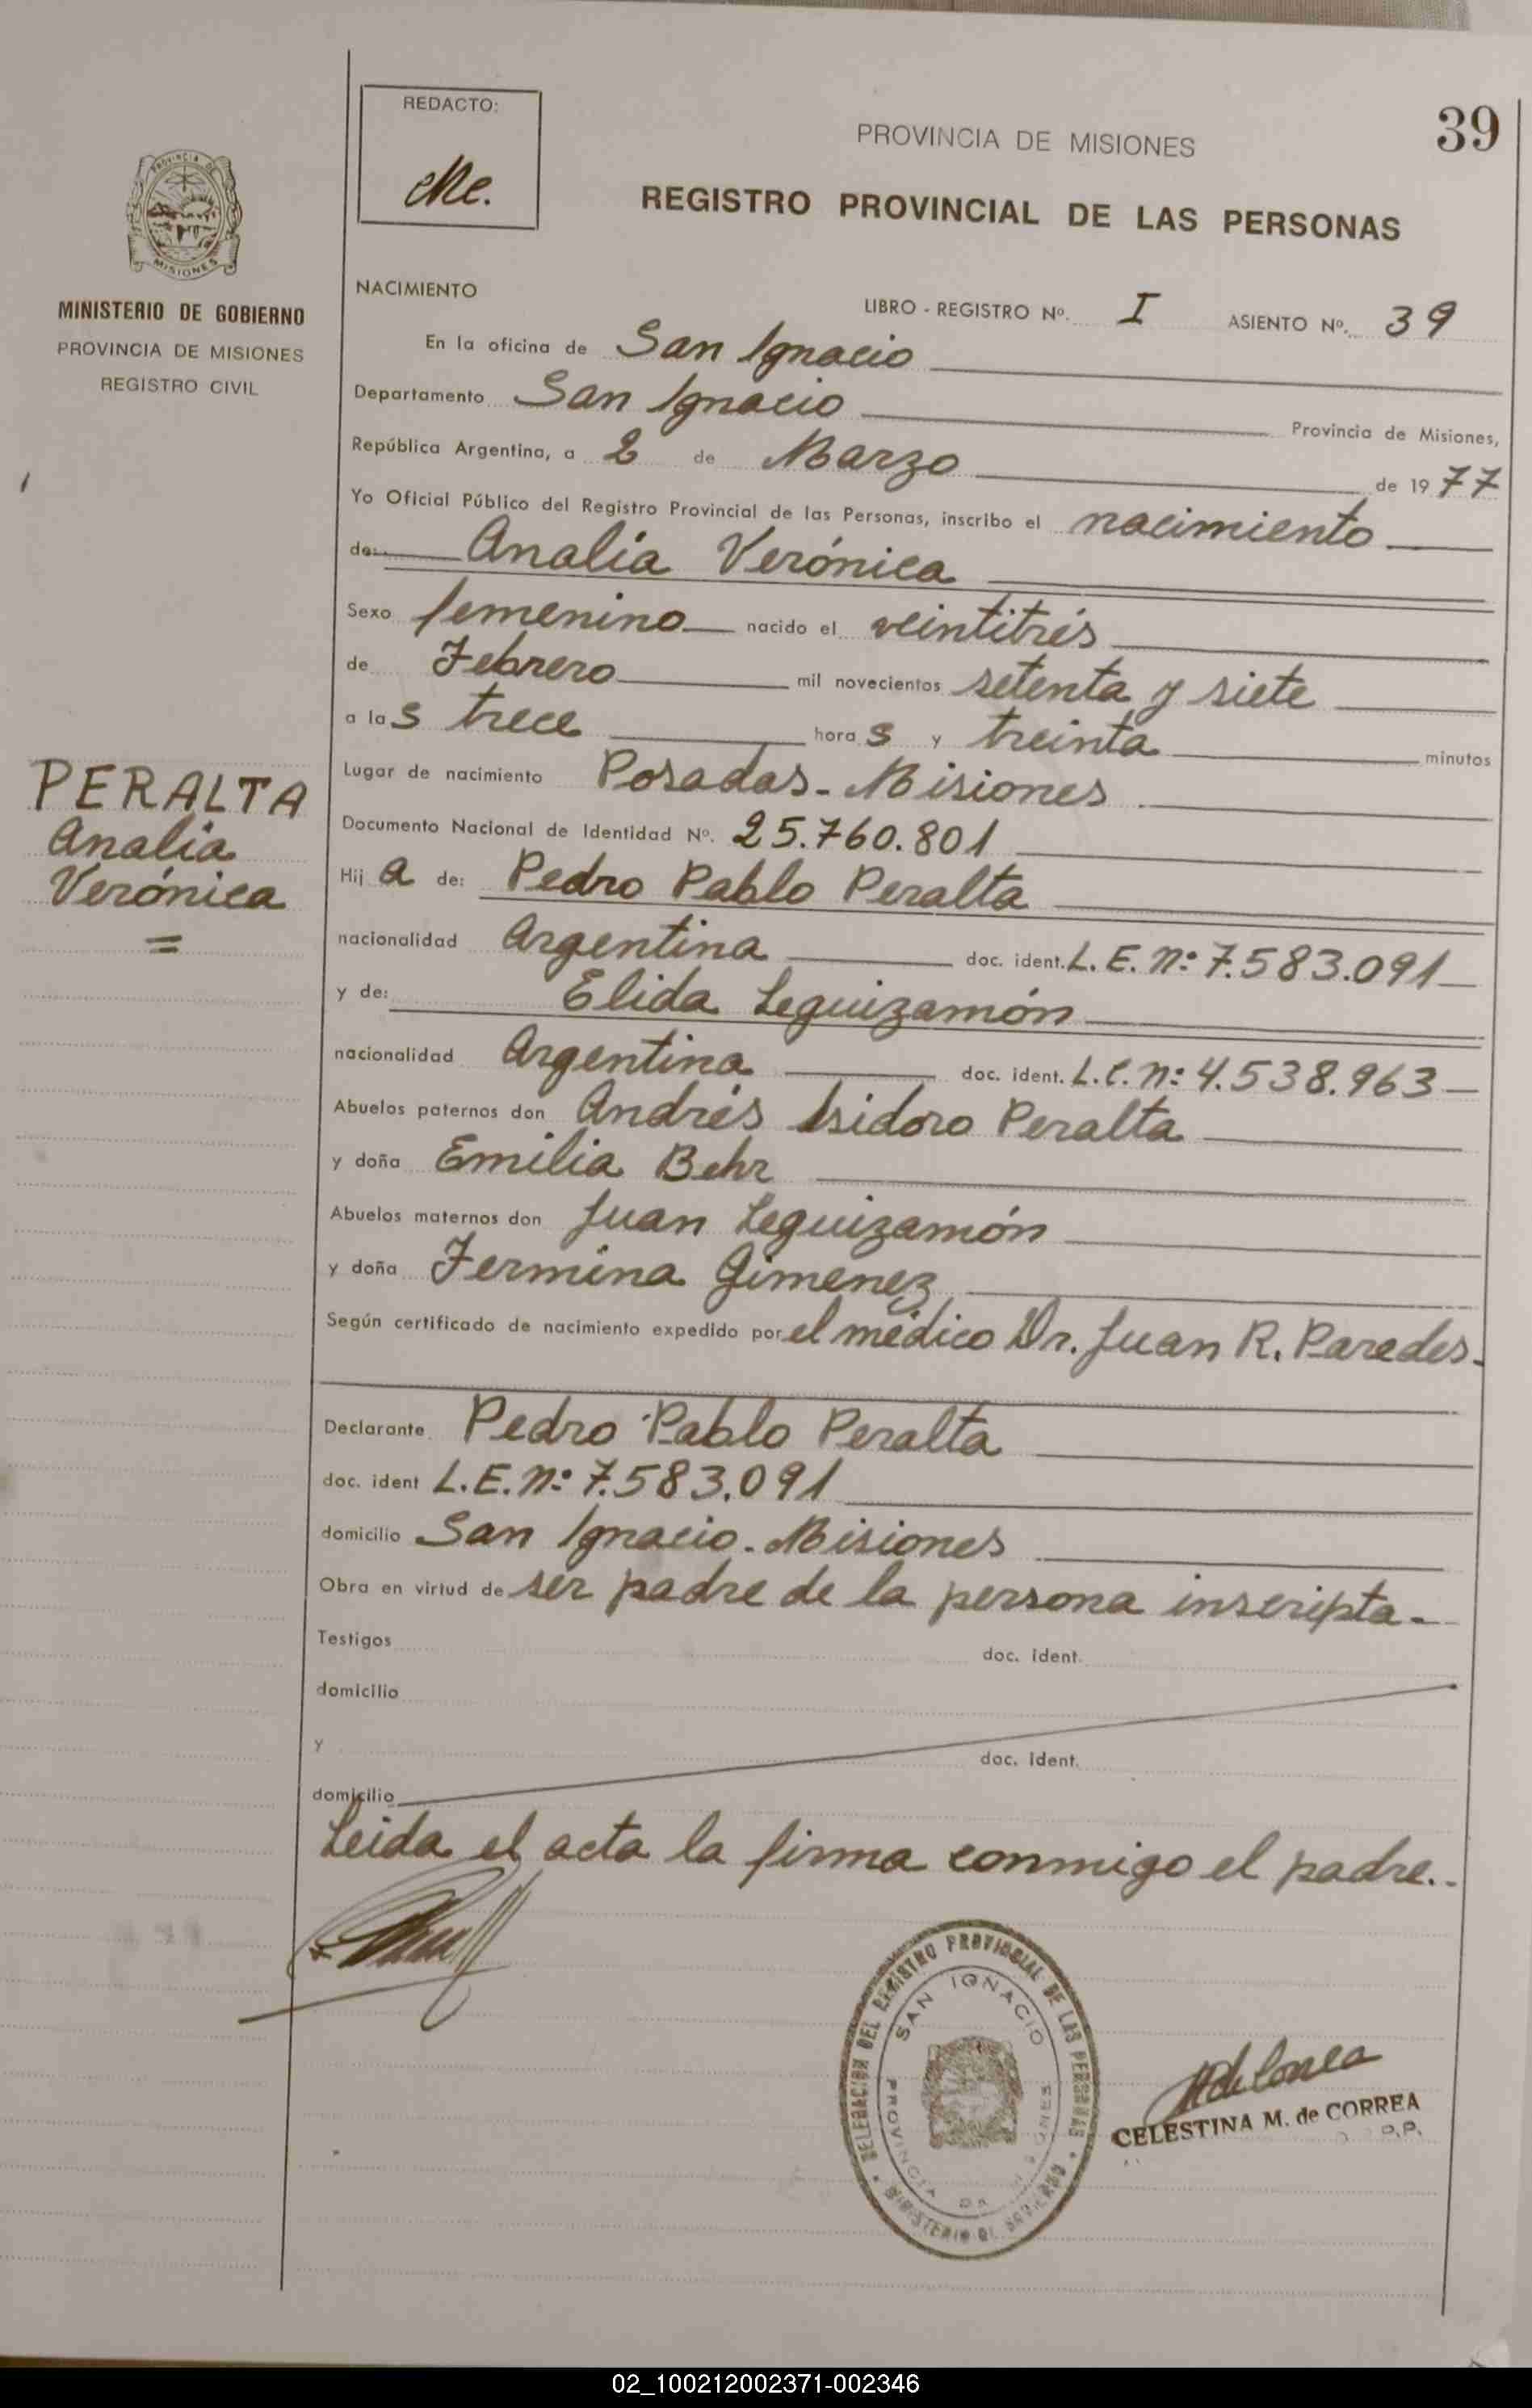 REDACTO:
PROVINCIA DE MISIONES
39
REGISTRO PROVINCIAL DE LAS PERSONAS
PROVINCIA DE
MISIONES
MINISTERIO DE GOBIERNO
PROVINCIA DE MISIONES
REGISTRO CIVIL
NACIMIENTO
LIBRO - REGISTRO Nº. I ASIENTO Nº. 39
En la oficina de San Ignacio
Departamento San Ignacio Provincia de Misiones,
República Argentina, a 2 de Marzo de 1977
Yo Oficial Público del Registro Provincial de las Personas, inscribo el nacimiento
de: Analía Verónica
Sexo femenino nacido el veintitrés
de Febrero mil novecientos setenta y siete
a las trece horas y treinta minutos
Lugar de nacimiento Posadas - Misiones
PERALTA
Analía
Verónica
=
Documento Nacional de Identidad Nº. 25.760.801
Hija de: Pedro Pablo Peralta
nacionalidad Argentina doc. ident. L. E. Nº: 7.583.091
y de: Elida Leguizamón
nacionalidad Argentina doc. ident. L.C. Nº: 4.538.963
Abuelos paternos don Andrés Isidoro Peralta
y doña Emilia Behr
Abuelos maternos don Juan Leguizamón
y doña Fermina Gimenez
Según certificado de nacimiento expedido por el médico Dr. Juan R. Paredes.
Declarante Pedro Pablo Peralta
doc. ident L.E. Nº: 7.583.091
domicilio San Ignacio - Misiones
Obra en virtud de ser padre de la persona inscripta.
Testigos doc. ident.
domicilio
y doc. ident.
domicilio
Leida el acta la firma conmigo el padre..
DELEGACION DEL REGISTRO PROVINCIAL DE LAS PERSONAS
SAN IGNACIO
PROVINCIA DE MISIONES
MINISTERIO DE GOBIERNO
CELESTINA M. de CORREA
O.P.
02_100212002371-002346